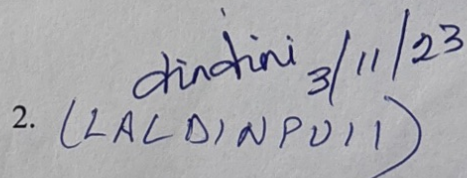 dindini 3/11/23
2. (LALDINPUII)